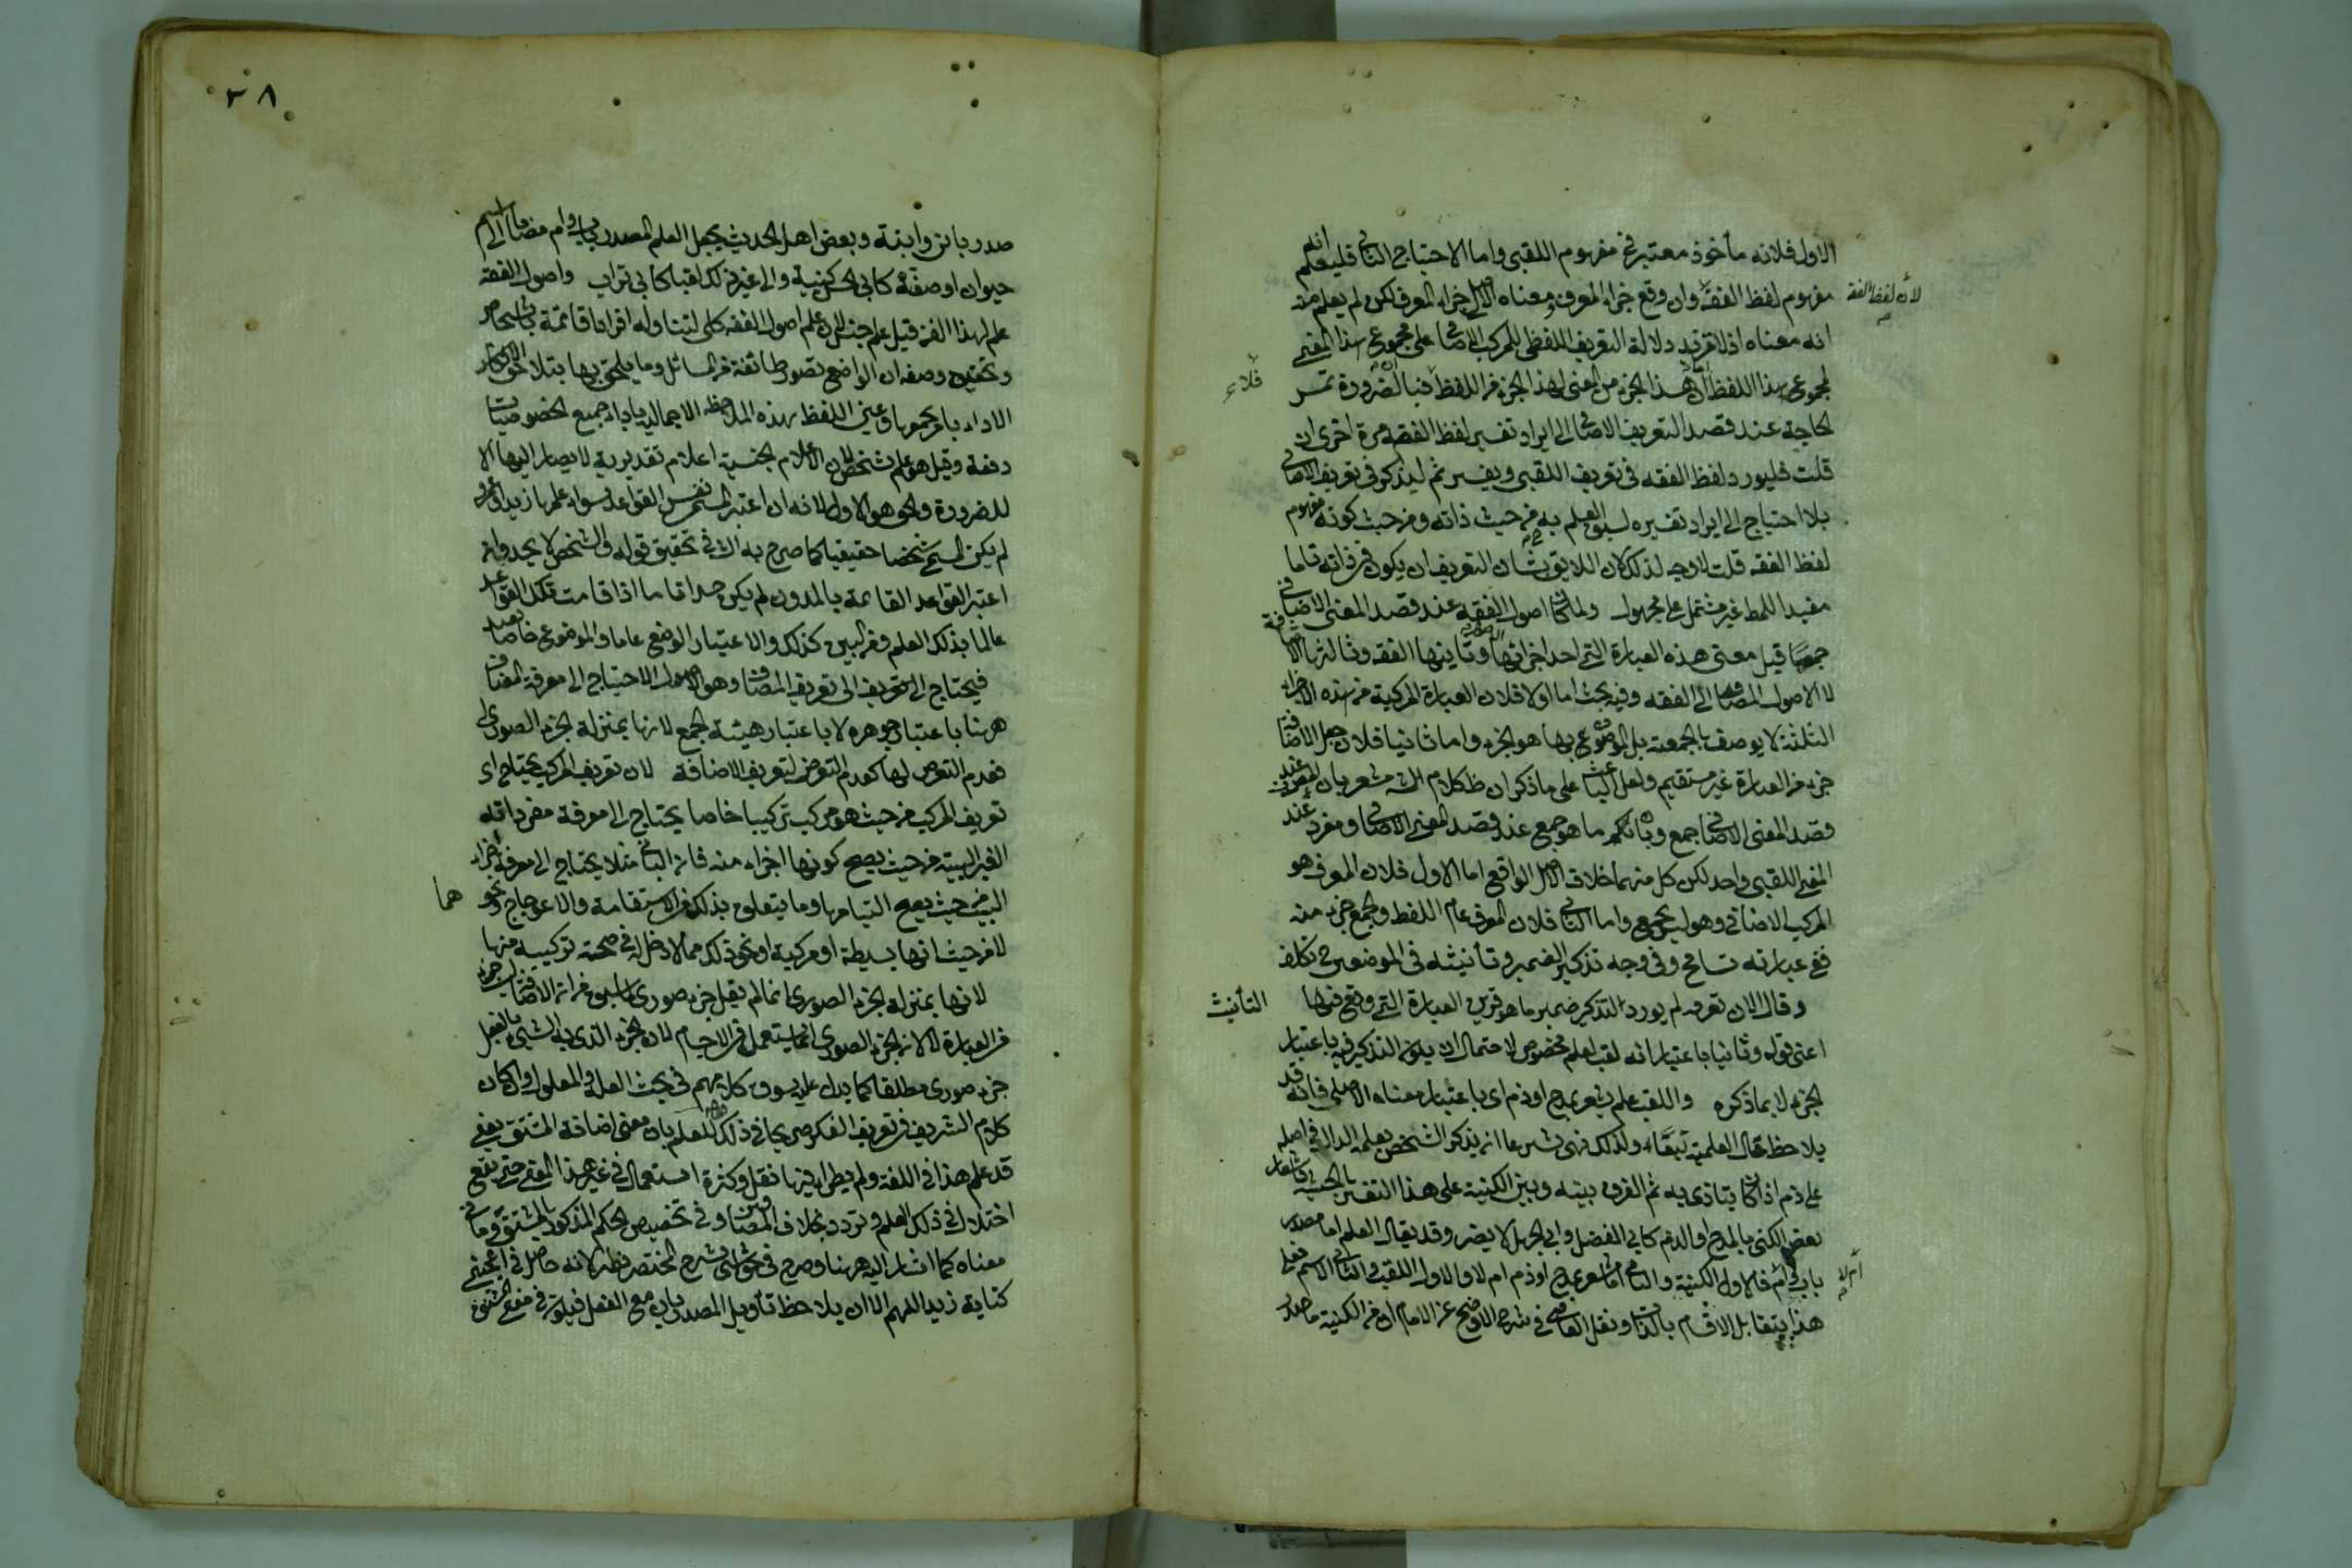 الاول فلانه مأخوذ معتبر في مفهوم اللقبي واما الاحتياج الثاني فليعلم انه
مفهوم لفظ الفقه وان وقع جزء المعرف ومعناه الاصلي جزاء المعرف لكن لم يعلم منه
لأن لفظ الفقه
انه معناه اذ لا تزيد دلالة التعريف اللفظي للمركب الاضافي على مجموع هذا المعنى
لمجموع هذا اللفظ لان هذا الجزء من المعنى لهذا الجزء من اللفظ فبالضرورة تمس
فلاء
الحاجة عند قصد التعريف الاضافي الى ايراد تفسير لفظ الفقه مرة اخرى ان
قلت فليورد لفظ الفقه في تعريف اللقبي ويفسر ثم ليذكر في تعريف الاضافي
بلا احتياج الى ايراد تفسيره لسبق العلم به من حيث ذاته ومن حيث كونه مفهوم
لفظ الفقه قلت لا وجه لذلك لان اللايق بشان التعريف ان يكون في ذاته تاما
مفيدا للمط غير مشتمل على مجهول ولما كان اصول الفقه عند قصد المعنى الاضافي
جمعا قيل معنى هذه العبارة التي احد اجزائها الاصول وثانيها الفقه وثالثها الاضافة
لا الاصول المضاف الى الفقه وفيه بحث اما اولا فلان العبارة المركبة من هذه الاجزاء
الثلثة لا يوصف بالجمعية بل الموضوع بها هو الجزء واما ثانيا فلان جعل الاضافة
جزء من العبارة غير مستقيم ولعل الباعث على ما ذكر ان ظ كلام الش مشعر بان المعرف عند
قصد المعنى الاضافي جمع وبانكم ما هو جمع عند قصد المعنى الاضافي ومفرد عند
المعنى اللقبي واحد لكن كل منهما خلاف الاصل الواقع اما الاول فلان المعرف هو
المركب الاضافي وهو ليس بجمع واما الثاني فلان المعرف عام اللفظ والجمع جزء منه
ففي عبارته تسامح وفي وجه تذكير الضمير وتأنيثه في الموضعين تكلف
وقال الان تعرف لم يورد التذكير ضمير ما هو قرين العبارة التي وقع فيها
التأنيث
اعنى قوله وثانيا باعتبار انه لقب لعلم مخصوص لاحتمال ان يكون التذكير فيه باعتبار
الجزء لا بما ذكره واللقب علم يشعر بمدح او ذم اى باعتبار معناه الاصلي فانه قد
يلاحظ حال العلمية تبعا ولذلك نهى شرعا ان يذكر الشخص بعلمه الدال في اصله
على ذم اذا كان يتاذى به ثم الفرق بينه وبين الكنية على هذا التفسير بالحيثية
بعض الكنى بالمدح او الذم كابي الفضل وابي الجهل لا يضر وقد يقال العلم اما مصدر
باب وام فالاول الكنية والثاني اما مشعر بمدح او ذم ام لا والاول اللقب والثاني الاسم فعلى
أم لا
هذا يتقابل الاقسام بالذات ونقل الفاضي في شرح الاوضح عن الامام ان من الكنية ما صدر
٣٨
صدر بابن وابنة وبعض اهل الحديث يجعل العلم المصدر باب وام مضافا الى اسم
حيوان او صفة كابي الحسن كنية والى غير ذلك لقبا كابي تراب واصول الفقه
علم لهذا الفن قيل علم جنس لان علم اصول الفقه كلي لتناوله افرادا قائمة باشخاص
وتحقيق وضعه ان الواضع تصور طائفة من المسائل وما يلحق بها بتلاحق الافكار
الاراء باسرها وعين اللفظ بهذه الملاحظة الاجمالية باداء جميع الخصوصيات
دفعة وقيل هو علم شخص لان الاعلام الجنسية اعلام تقديرية لا يصار اليها الا
للضرورة والحق هو الاول لانه ان اعتبر المسمى نفس القواعد سواء علمها زيد او عمرو
لم يكن المسمى شخصا حقيقيا كما صرح به الش في تحقيق قوله والشخص لا يحد وان
اعتبر القواعد القائمة بالمدون لم يكن صداقا ما اذا قامت تلك القواعد
عالما بذلك العلم وفر البين كذلك والاعتبار الوضع عاما والموضوع خاصا بعيد
فيحتاج الى تعريف الى تعريف المضاف وهو الاصول الاحتياج الى معرفة المضاف
ههنا باعتبار جوهره لا باعتبار هيئة الجمع لانها بمنزلة الجزء الصورى
فعدم التعرض لها كعدم التعرض لتعريف الاضافة لان تعريف المركب يحتاج اى
تعريف المركب من حيث هو مركب تركيبا خاصا يحتاج الى معرفة مفرداته
الغير البينة من حيث يصح كونها اجزاء منه فان الباني مثلا يحتاج الى معرفة اجزاء
البيت من حيث يصح التيامها وما يتعلق بذلك من الاستقامة والاعوجاج ونحو
هما
لا من حيث انها بسيطة او مركبة او نحو ذلك مما لا دخل له في صحة تركيبه منها
لانها بمنزلة الجزء الصورى انما لم يقل جزء صورى لما سبق من ان الاضافة ليس جزء
من العبارة لا لان الجزء الصورى انما يستعمل في الاجسام لان الجزء الذي به الشيء بالفعل
جزء صورى مطلقا كما يدل عليه سوق كلامهم في بحث العلة والمعلول وان كان
كلام الشريف في تعريف الفكر صريحا في ذلك للعلم بان معنى اضافة المشتق يعني
قد علم هذا في اللغة ولم يطرا فيها نقل وكثرة استعمال في غير هذا المعنى حتى يقع
اختلال في ذلك العلم وتردد بخلاف المضاف وفي تخصيص الحكم المذكور بالمشتق وما في
معناه كما اشار اليه ههنا وصرح في حواشي شرح المختصر نظر لانه حاصل في اعجبني
كتابة زيد اللهم الا ان يلاحظ تأويل المصدر بان مع الفعل فيكون في معنى المشتق